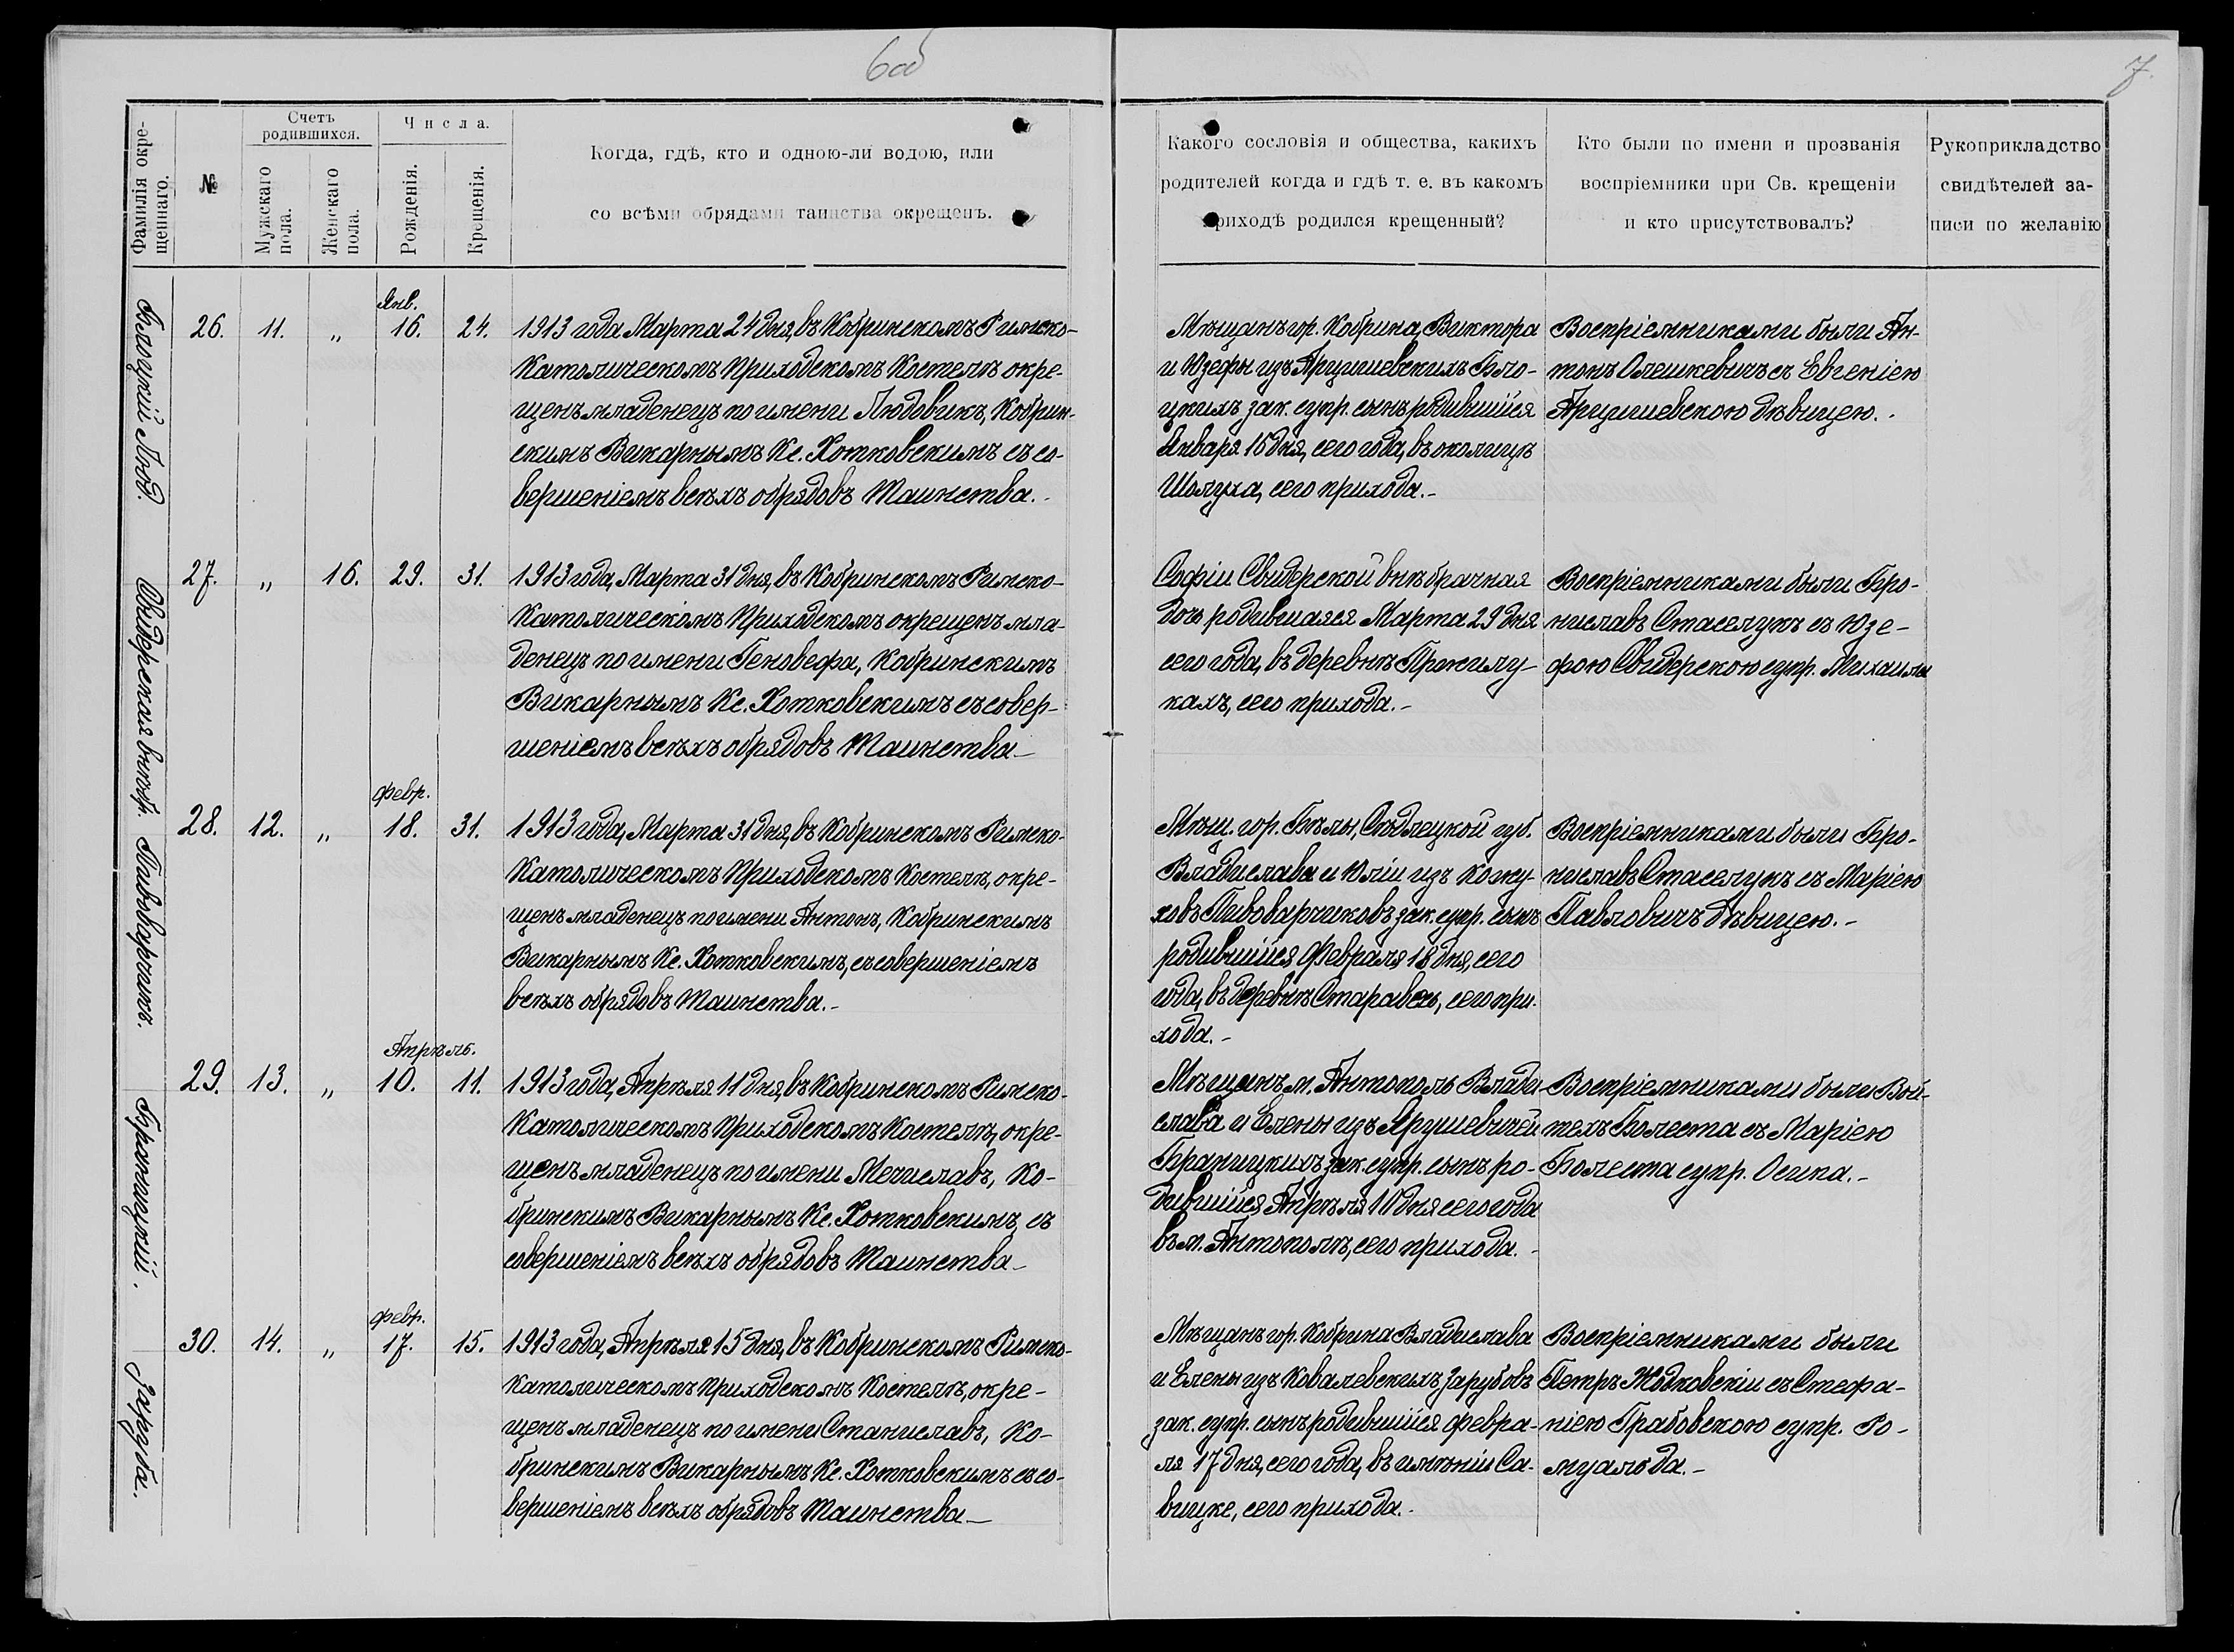 6об
7.
Фамилія окре-
щеннаго.
№
Счетъ
родившихся.
Мужскаго
пола.
Женскаго
пола.
Числа.
Рожденія.
Крещенія.
Когда, гдѣ, кто и одною-ли водою, или
со всѣми обрядами таинства окрещенъ.
Какого сословія и общества, какихъ
родителей когда и гдѣ т. е. въ какомъ
приходѣ родился крещенный?
Кто были по имени и прозванія
воспріемники при Св. крещеніи
и кто присутствовалъ?
Рукоприкладство
свидѣтелей за-
писи по желанію
Блоцкій Люд.
26. 11. „ Янв. 16. 24.
1913 года Марта 24 дня, въ Кобринскомъ Римско-
Католическомъ Приходскомъ Костелѣ окре-
щенъ младенецъ по имени Людовикъ, Кобрин-
скимъ Викарнымъ Кс. Хотковскимъ съ со-
вершеніемъ всѣхъ обрядовъ Таинства.-
Мѣщанъ гр. Кобрина, Виктора
и Юзефы изъ Ярушевскихъ Бло-
цкихъ зак. супр. сынъ родившійся
Января 16 дня, сего года, въ околицѣ
Шолуха, сего прихода.-
Воспріемниками были Ан-
тонъ Олешкевичъ съ Евгеніею
Ярушевскою дѣвицею.-
Свидерская внѣбр.
27. „ 16. 29. 31.
1913 года, Марта 31 дня, въ Кобринскомъ Римско-
Католическомъ Приходскомъ окрещенъ мла-
денецъ по имени Геновефа, Кобринскимъ
Викарнымъ Кс. Хотковскимъ съ совер-
шеніемъ всѣхъ обрядовъ Таинства-
Софіи Свидерской внѣбрачная
дочь родившаяся Марта 29 дня
сего года, въ деревнѣ
кахъ, сего прихода.-
Воспріемниками были Бро-
ниславъ Стаселукъ съ Юзе-
фою Свидерскою супр. Михаила
Пивоварчикъ.
28. 12. „ февр. 18. 31.
1913 года, Марта 31 дня, въ Кобринскомъ Римско-
Католическомъ Приходскомъ Костелѣ, окре-
щенъ младенецъ по имени Антонъ, Кобринскимъ
Викарнымъ Кс. Хотковскимъ, съ совершеніемъ
всѣхъ обрядовъ Таинства.-
Мѣщ. гор. Бѣлы, Сѣдлецкой губ.
Владислава и Юліи изъ Кожу-
ховъ Пивоварчиковъ зак. супр. сынъ
родившійся Февраля 18 дня, сего
года, въ деревнѣ сего при-
хода.-
Воспріемниками были Бро-
ниславъ Стаселукъ съ Маріею
Павловичъ дѣвицею.-
Браницкій.
29. 13. „ Апрѣль. 10. 11.
1913 года, Апрѣля 11 дня, въ Кобринскомъ Римско-
Католическомъ Приходскомъ Костелѣ, окре-
щенъ младенецъ по имени Мечиславъ, Ко-
бринскимъ Викарнымъ Кс. Хотковскимъ, съ
совершеніемъ всѣхъ обрядовъ Таинства-
Мѣщанъ м. Антополь Влади-
слава и Елены изъ Ярушевичей
Браницкихъ зак. супр. сынъ ро-
дившійся Апрѣля 10 дня сего года
въ м. Антополѣ, сего прихода.-
Воспріемниками были Вой-
техъ Болеста съ Маріею
Болеста супр. Осипа.-
Заруба.
30. 14. „ февр. 17. 15.
1913 года, Апрѣля 15 дня, въ Кобринскомъ Римско-
Католическомъ Приходскомъ Костелѣ, окре-
щенъ младенецъ по имени Станиславъ, Ко-
бринскимъ Викарнымъ Кс. Хотковскимъ съ со-
вершеніемъ всѣхъ обрядовъ Таинства-
Мѣщанъ гор. Кобрина Владислава
и Елены изъ Ковалевскихъ Зарубовъ
зак. супр. сынъ родившійся Февра-
ля 17 дня, сего года, въ имѣніи Са-
вицке, сего прихода.-
Воспріемниками были
Петръ Жодковскіи съ Стефа-
ніею Грабовскою супр. Ро-
муальда.-